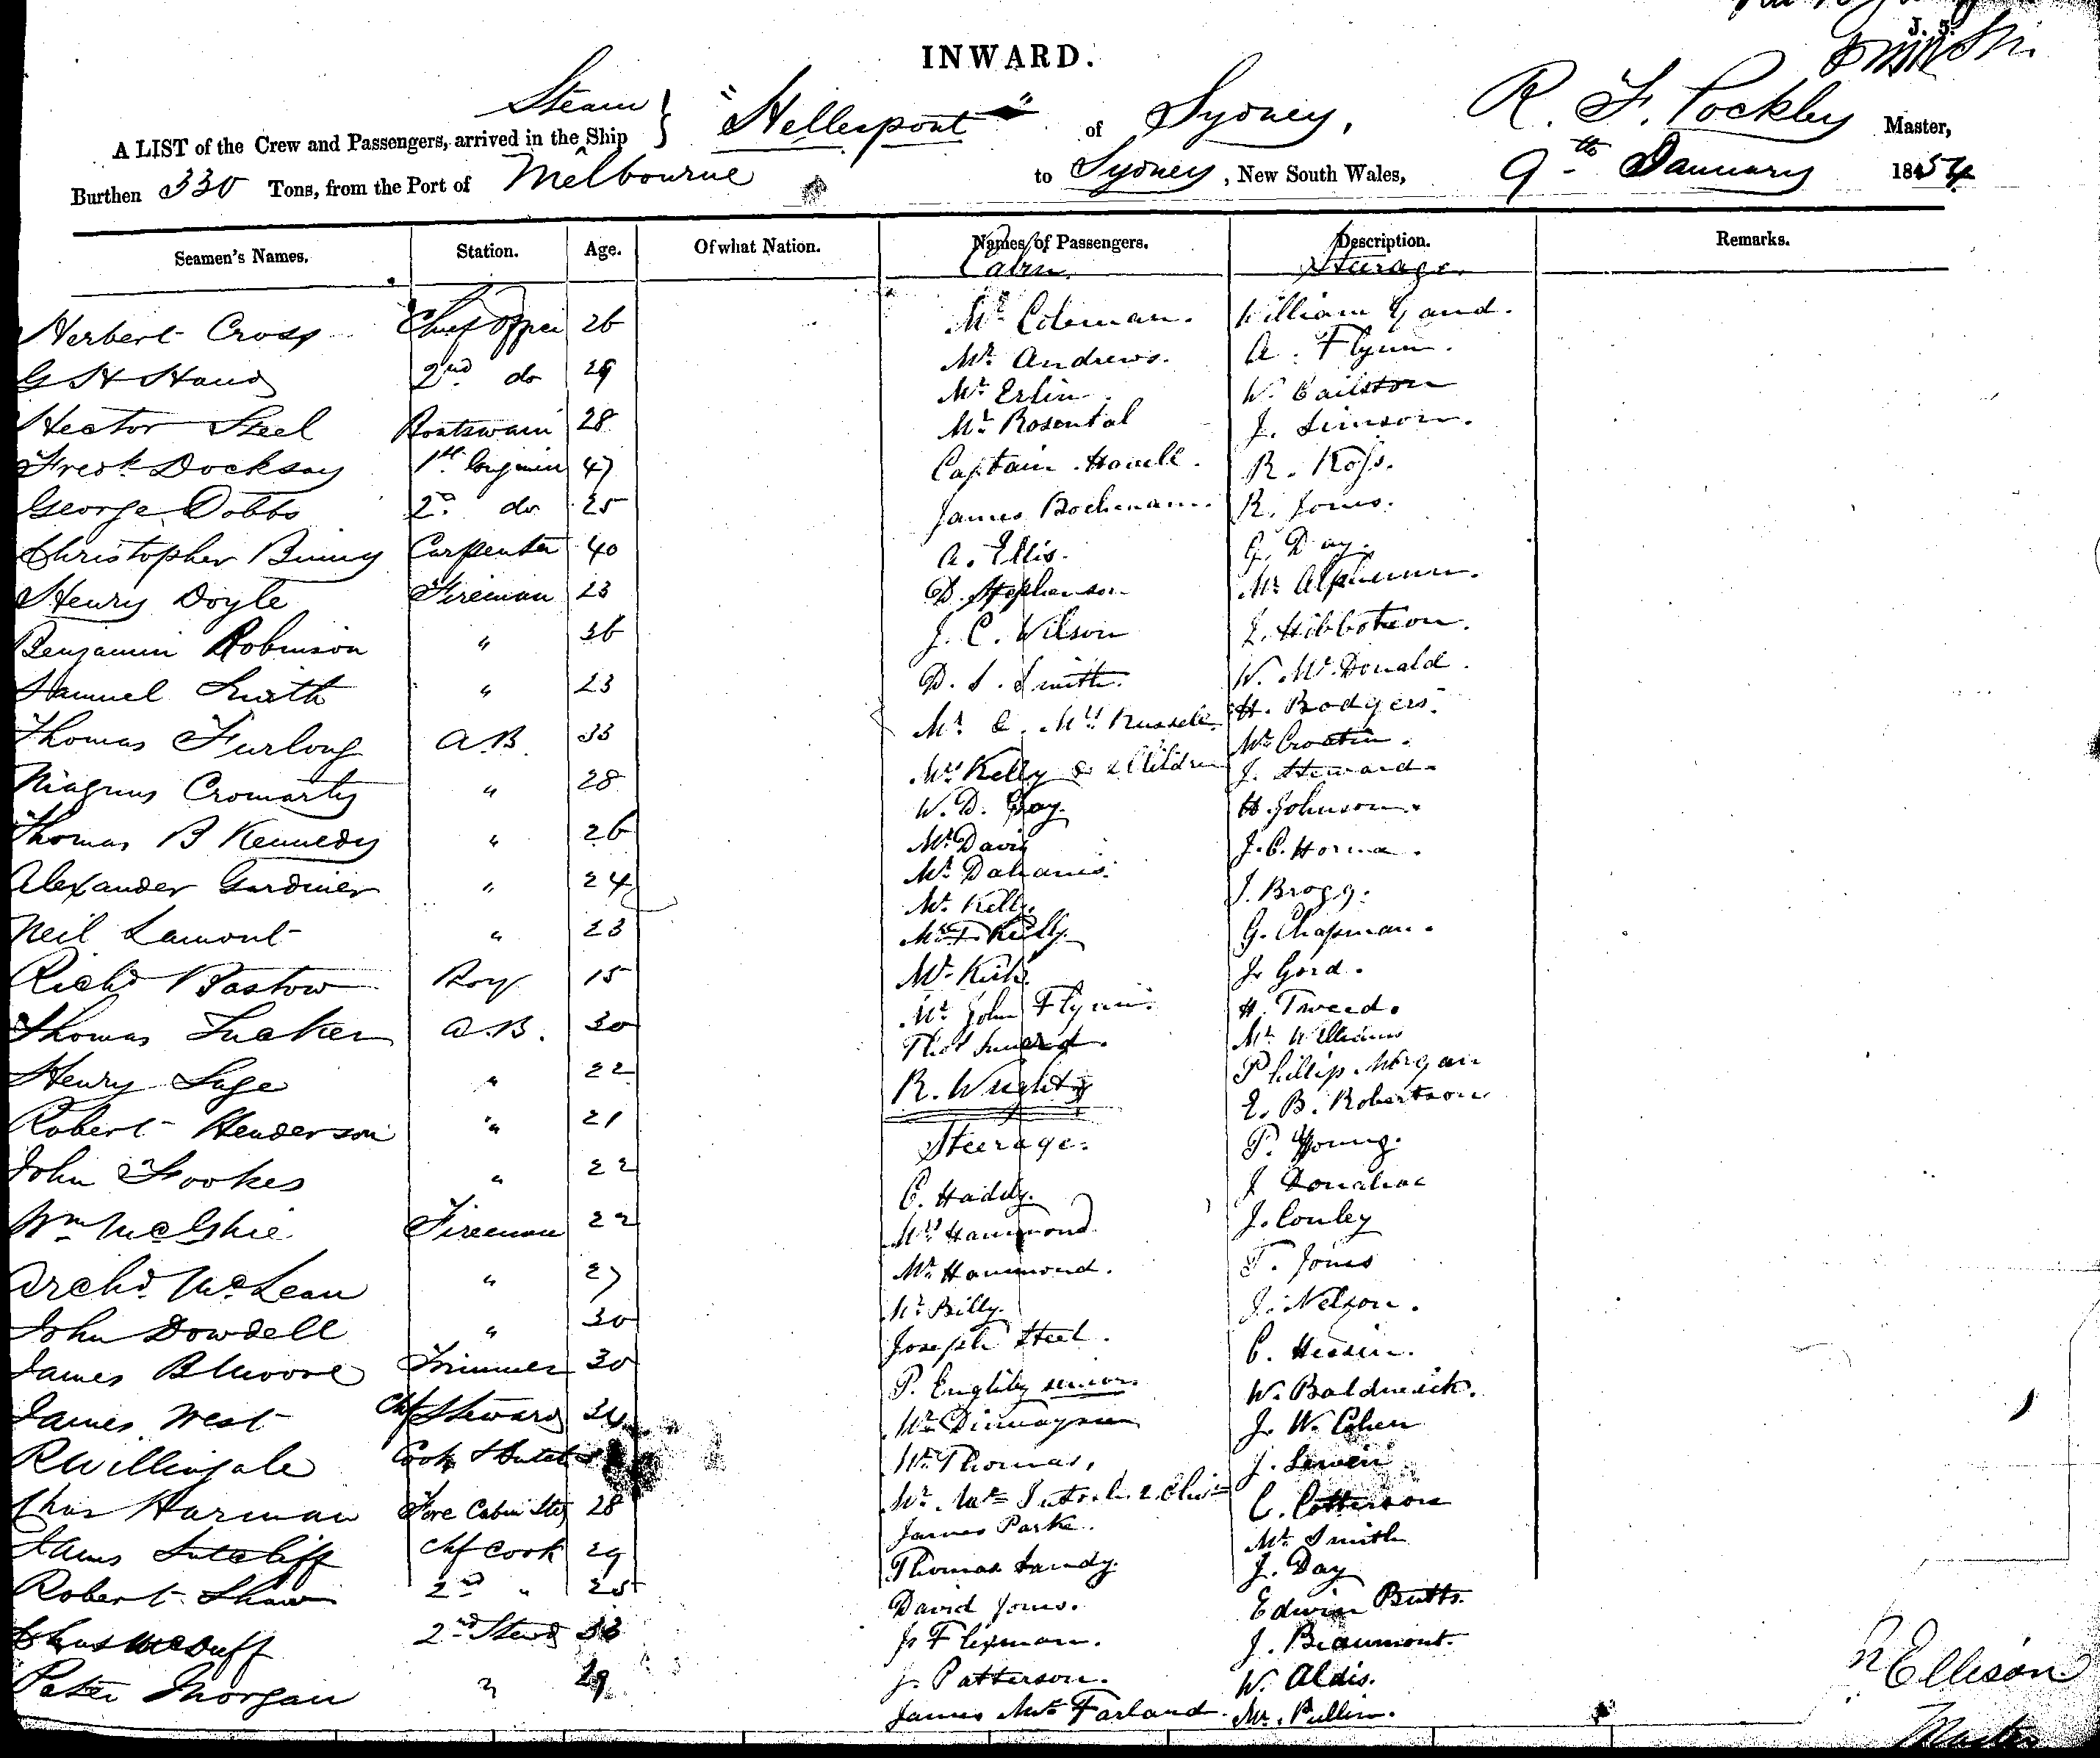 J. S.
INWARD.
Steam
A LIST of the Crew and Passengers, arrived in the Ship } "Hellespont" of Sydney, R. F. Pockley Master,
Burthen 330 Tons, from the Port of Melbourne to Sydney, New South Wales, 9th January 1854
Seamen's Names. Station. Age. Of what Nation. Names of Passengers. Description. Remarks.
Cabin. Steerage.
Herbert Cross Chief Officer 26 Mr Coleman. William Gand.
G H Hand 2nd do 29 Mr Andrews. A. Flynn.
Mr Erlin. W. Cailston
Hector Steel Boatswain 28 Mr Rosental J. Simson.
Fredk Docksay 1st Enginin 47 Captain Hovell. R. Ross.
George Dobbs 2d do 25 James Bochmann. R. Jones.
Christopher Binny Carpenter 40 A. Ellis. G. Day.
Henry Doyle Fireman 23 D. Stephenson Mr
Benjamin Robinson " 36 J. C. Wilson J. Hibbotson.
Samuel Smith " 23 D. S. Smith. W. McDonald.
Thomas Furlong A.B. 33 Mr & Mrs Russell H. Rodgers.
Mrs Kelly & 2 Children Mr Croatin.
Magnus Cromarty " 28 W. D. Gay. J. Steward.
Thomas B Kennedy " 26 Mr Davis H. Johnson.
Alexander Gardiner " 24 Mr Dahanis. J. C. Horna.
Mr Kelly. J. Bragg.
Neil Lamont " 23 Mr T. Kelly. G. Chapman.
Richd Bastow Boy 15 Mr Kirk. J. Gord.
Thomas Tucker A.B. 30 Mr John Flynn. H. Tweed.
Thos Mr Williams
Henry Sage " 22 R. Wright Phillip Morgan
Robert Henderson " 21 E. B. Robertson
Steerage. P. Young.
John Fookes " 22 C. Haddy. J Donahae
Wm McGhie Fireman 22 Mrs Hammond J. Conley
Archd McLean " 27 Mr Hammond. T. Jones
John Dowdell " 30 Mr Billy. J. Nelson.
James Blmoore Trimmer 30 Joseph Steel. C.
P. senior W. Baldwick.
James West Chf Steward 34 Mr J. W. Cohen
R Willingale Cook & Mr Thomas, J.
Chas Harman Fore Cabin Std 28 Mr Mrs 2 C. Cotterson
James Sutcliff Chf Cook 29 James Parke. Mr Smith
Robert Shaw 2nd " 25 Thomas Handy. J. Day
Chas McDuff 2nd Stewd 33 David Jones. Edwin Butts.
J. Flexman. J. Beaumont.
Peter Morgan " 29 J. Patterson. W. Aldis.
James McFarland. Mr. Pullin.
R Ellison
Master